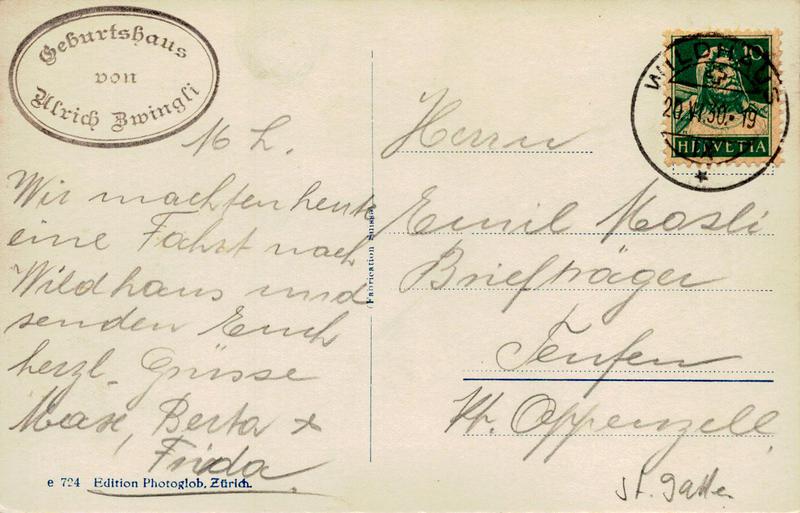 Geburtshaus
von
Ulrich Zwingli
M L.
Wir machten heute
eine Fahrt nach
Wildhaus und
senden Euch
herzl. Grüsse
Max, Berta +
Frida
e 724 Edition Photoglob, Zürich.
Fabrication Suisse
WILDHAUS
20.VI.30.-19
10
HELVETIA
Herrn
Emil Mösli
Briefträger
Teufen
Kt. Appenzell
St. Gallen